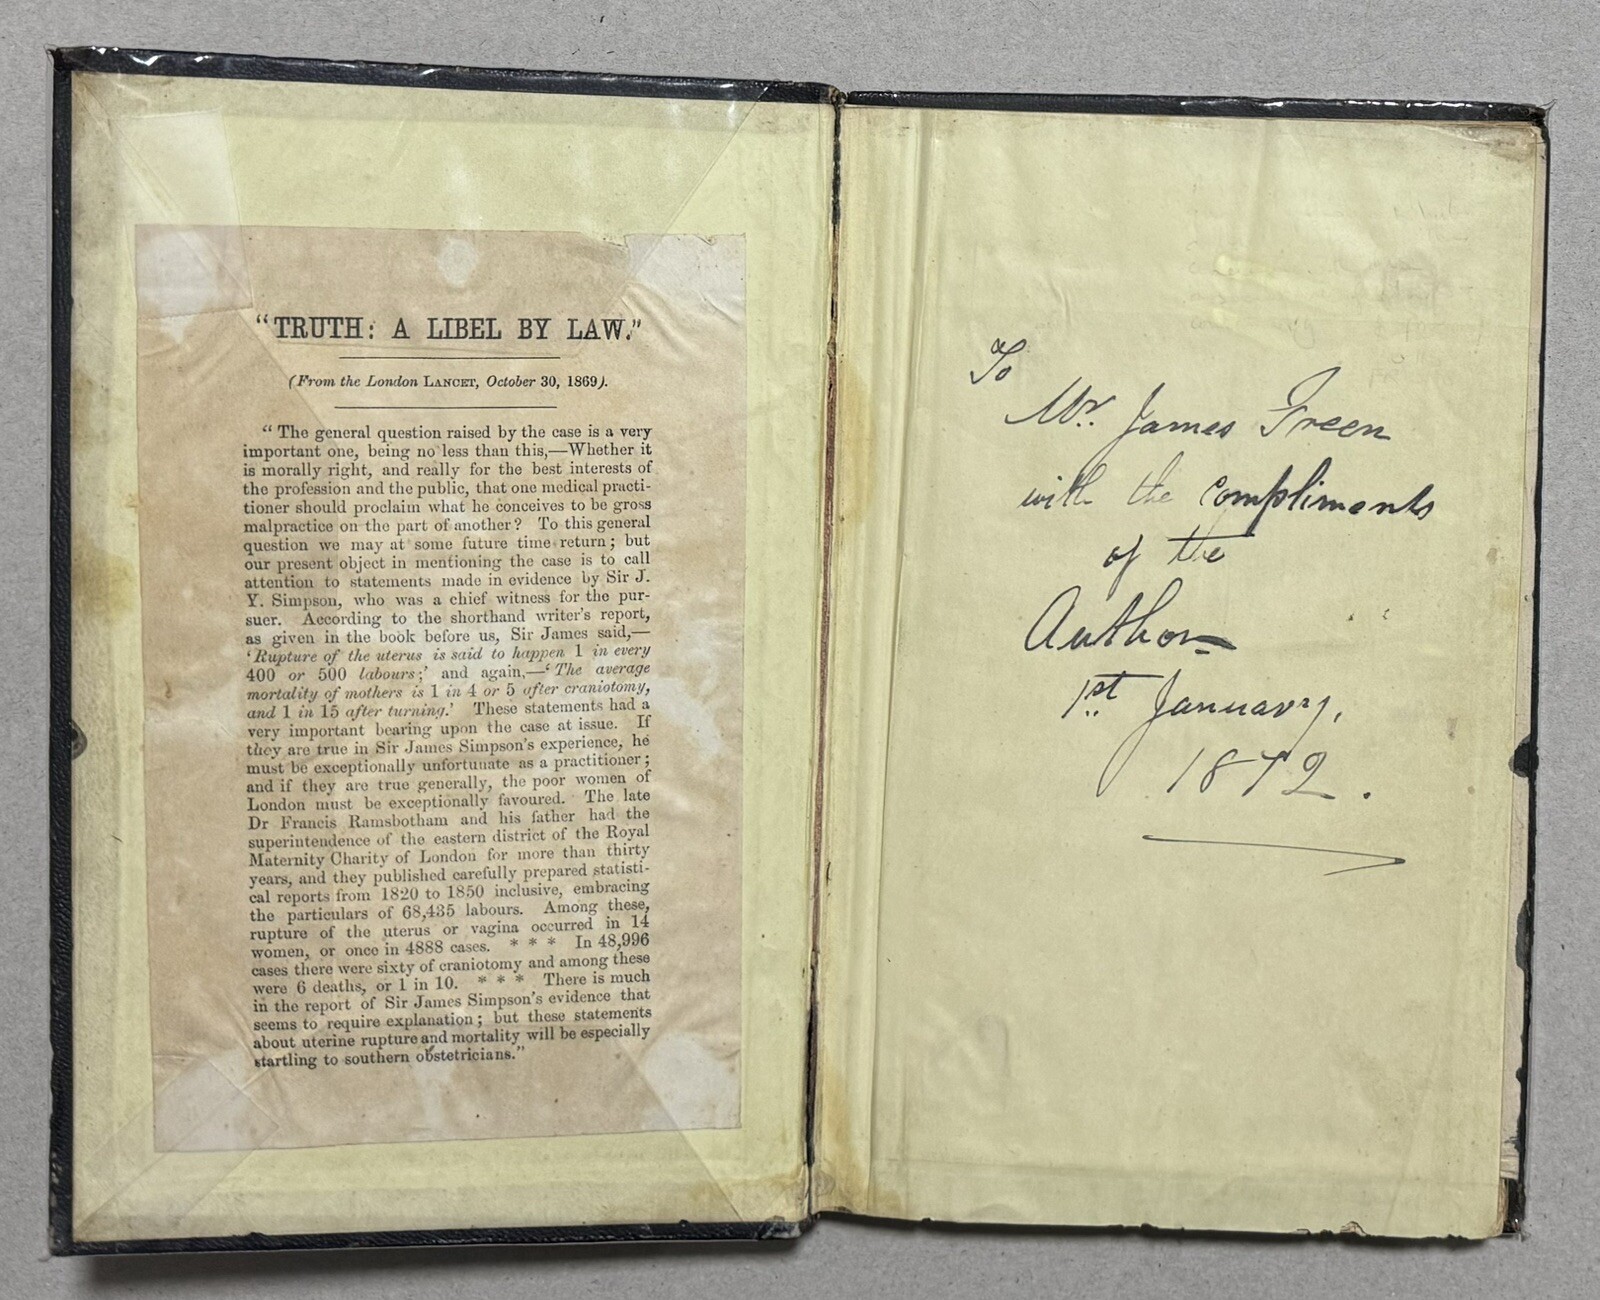 “TRUTH: A LIBEL BY LAW.”
(From the London LANCET, October 30, 1869).
“ The general question raised by the case is a very
important one, being no less than this,—Whether it
is morally right, and really for the best interests of
the profession and the public, that one medical practi-
tioner should proclaim what he conceives to be gross
malpractice on the part of another? To this general
question we may at some future time return; but
our present object in mentioning the case is to call
attention to statements made in evidence by Sir J.
Y. Simpson, who was a chief witness for the pur-
suer. According to the shorthand writer's report,
as given in the book before us, Sir James said,—
‘Rupture of the uterus is said to happen 1 in every
400 or 500 labours;’ and again,—‘The average
mortality of mothers is 1 in 4 or 5 after craniotomy,
and 1 in 15 after turning.’ These statements had a
very important bearing upon the case at issue. If
they are true in Sir James Simpson's experience, he
must be exceptionally unfortunate as a practitioner;
and if they are true generally, the poor women of
London must be exceptionally favoured. The late
Dr Francis Ramsbotham and his father had the
superintendence of the eastern district of the Royal
Maternity Charity of London for more than thirty
years, and they published carefully prepared statisti-
cal reports from 1820 to 1850 inclusive, embracing
the particulars of 68,435 labours. Among these,
rupture of the uterus or vagina occurred in 14
women, or once in 4888 cases. * * * In 48,996
cases there were sixty of craniotomy and among these
were 6 deaths, or 1 in 10. * * * There is much
in the report of Sir James Simpson's evidence that
seems to require explanation; but these statements
about uterine rupture and mortality will be especially
startling to southern obstetricians.”
To
Mr. James Green
with the compliments
of the
Author
1st January,
1872.